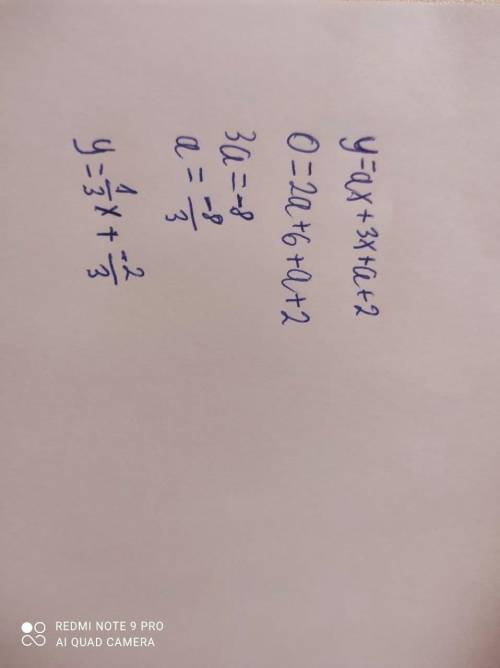 y=ax+3x+a+2
0=2a+6+a+2
3a=-8
a=-8/3
y=1/3x+-2/3
REDMI NOTE 9 PRO
AI QUAD CAMERA